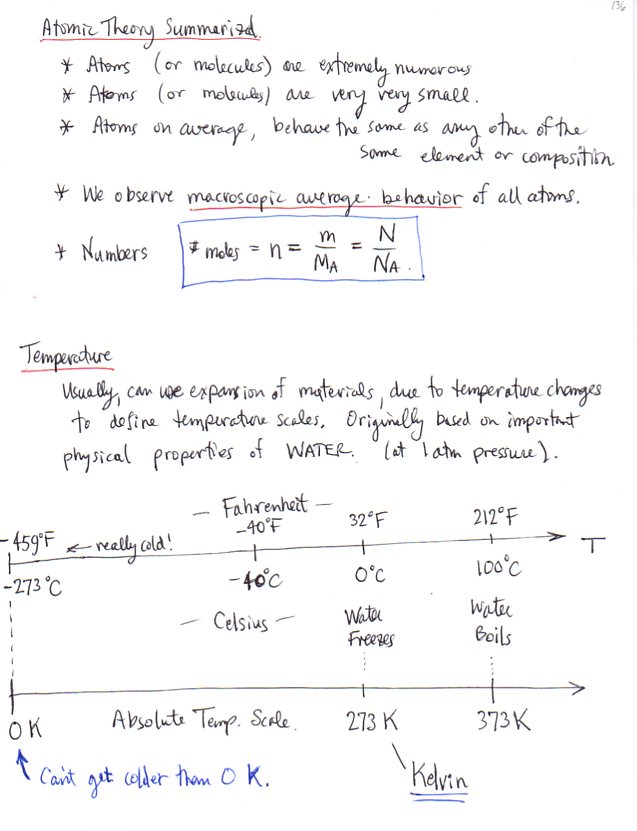 136
Atomic Theory Summarized.
* Atoms (or molecules) are extremely numerous
* Atoms (or molecules) are very very small.
* Atoms on average, behave the same as any other of the
same element or composition
* We observe macroscopic average behavior of all atoms.
* Numbers # moles = n = m/MA = N/NA.
Temperature
Usually, can use expansion of materials, due to temperature changes
to define temperature scales. Originally based on important
physical properties of WATER. (at 1 atm pressure).
— Fahrenheit —
-459°F ← really cold! -40°F 32°F 212°F T
-273°C -40°C 0°C 100°C
— Celsius — Water Freezes Water Boils
0 K Absolute Temp. Scale. 273 K 373 K
Can't get colder than 0 K. Kelvin